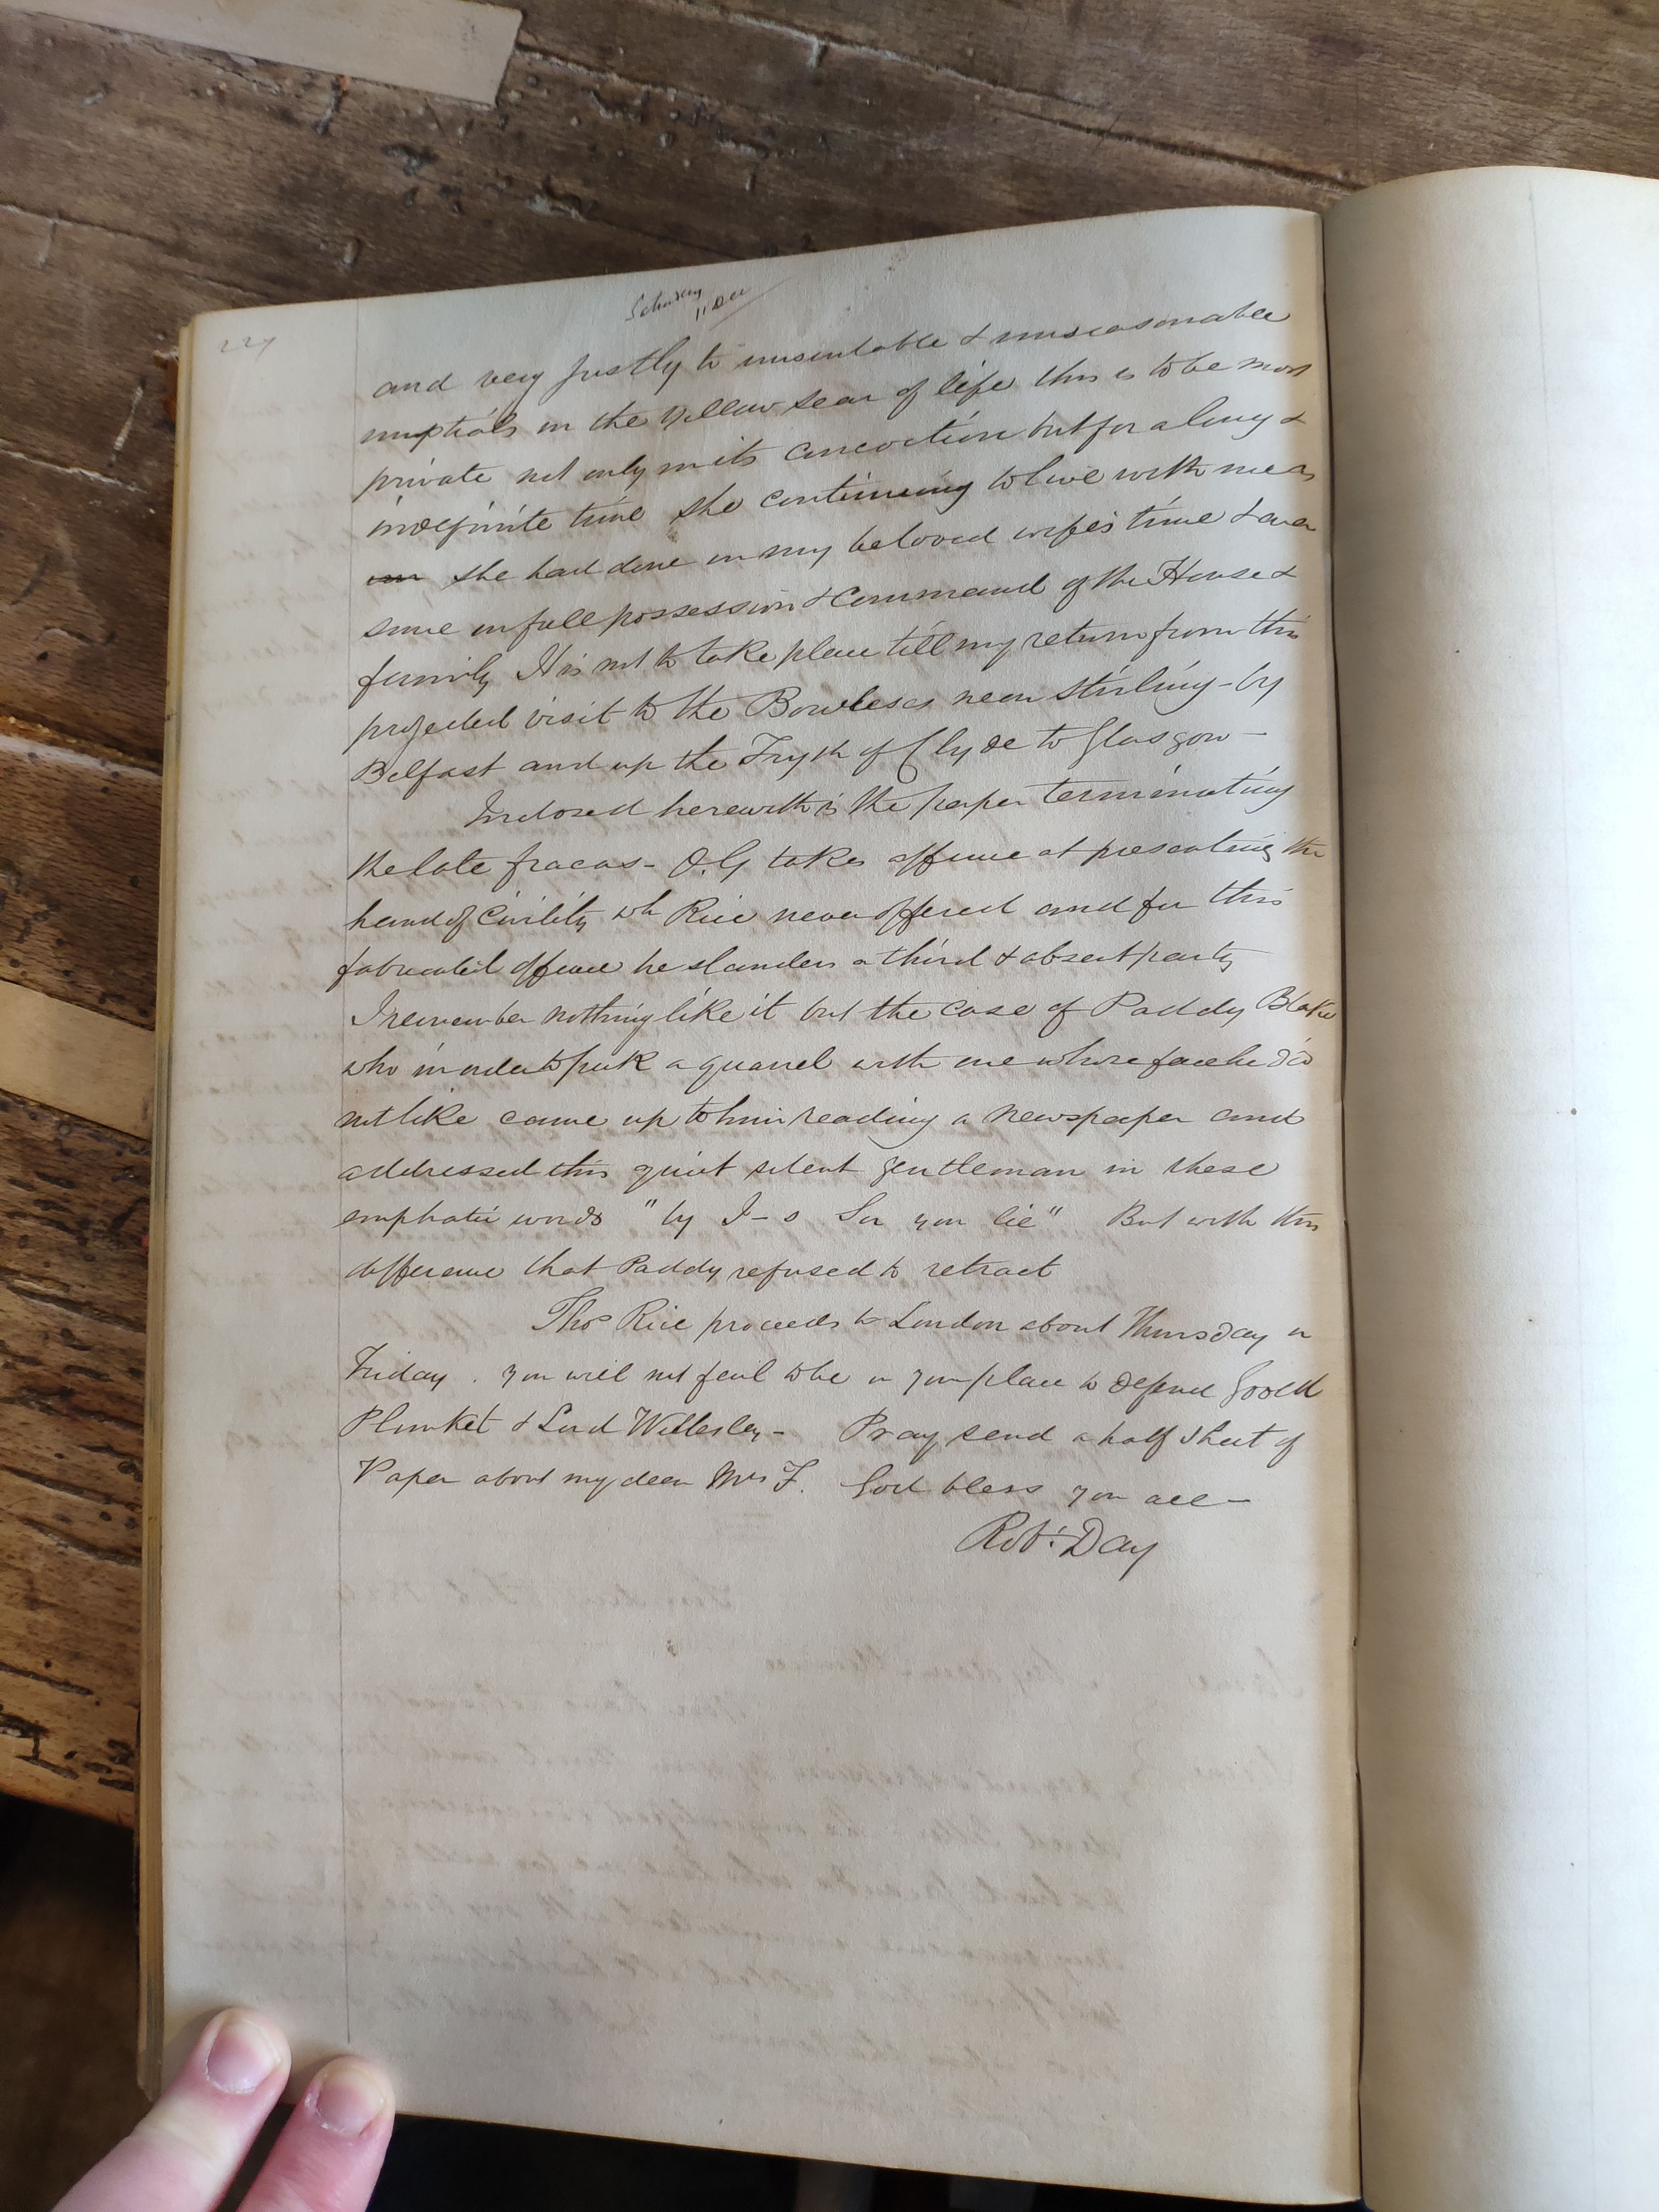 227
Saturday
11 Dec
and very justly to unsuitable & unseasonable
nuptials in the yellow sear of life this is to be most
private not only in its concoction but for a long &
indefinite time she continuing to live with me as
she had done in my beloved wife's time & ever
since in full possession & command of the House &
family It is not to take place till my return from this
projected visit to the Bowleses near Stirling - by
Belfast and up the Fryth of Clyde to Glasgow -
Inclosed herewith is the paper terminating
the late fracas - O.G takes offence at presenting the
hand of Civility wh Rice never offered and for this
fabricated offence he slanders a third & absent party
I remember nothing like it but the case of Paddy Blake
who in order to pick a quarrel with one whose face he did
not like came up to him reading a newspaper and
addressed this quiet silent gentleman in these
emphatic words "by J-s Sir you lie" But with this
difference that Paddy refused to retract
Thos Rice proceeds to London about Thursday or
Friday . you will not fail to be in your place to defend Goold
Plunket & Lord Wellesley - Pray send a half sheet of
Paper about my dear Mrs F. God bless you all -
Robt: Day